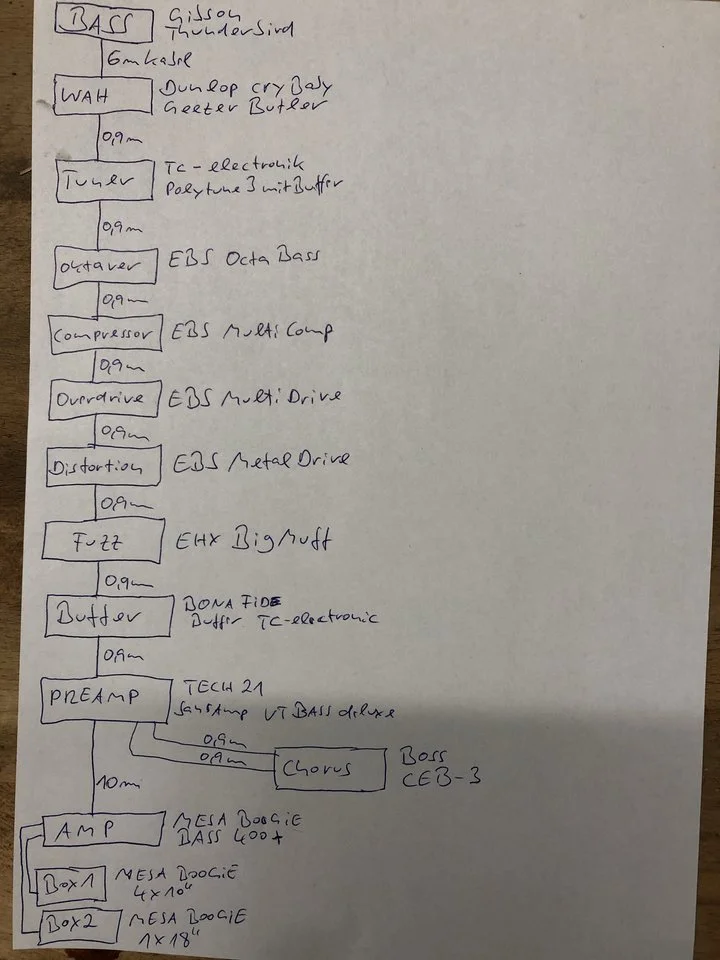 BASS Gibson
Thunderbird
6m Kabel
WAH Dunlop cry Baby
Geezer Butler
0,9m
Tuner TC-electronik
Polytune 3 mit Buffer
0,9m
Oktaver EBS Octa Bass
0,9m
Compressor EBS Multi Comp
0,9m
Overdrive EBS Multi Drive
0,9m
Distortion EBS Metal Drive
0,9m
Fuzz EHX Big Muff
0,9m
Buffer BONA FIDE
Buffer TC-electronic
0,9m
PREAMP TECH 21
SansAmp VT BASS diluxe
0,9m
0,9m
Chorus Boss
CEB-3
10m
AMP MESA BOOGIE
BASS 400+
Box 1 MESA BOOGIE
4x10"
Box 2 MESA BOOGIE
1x18"